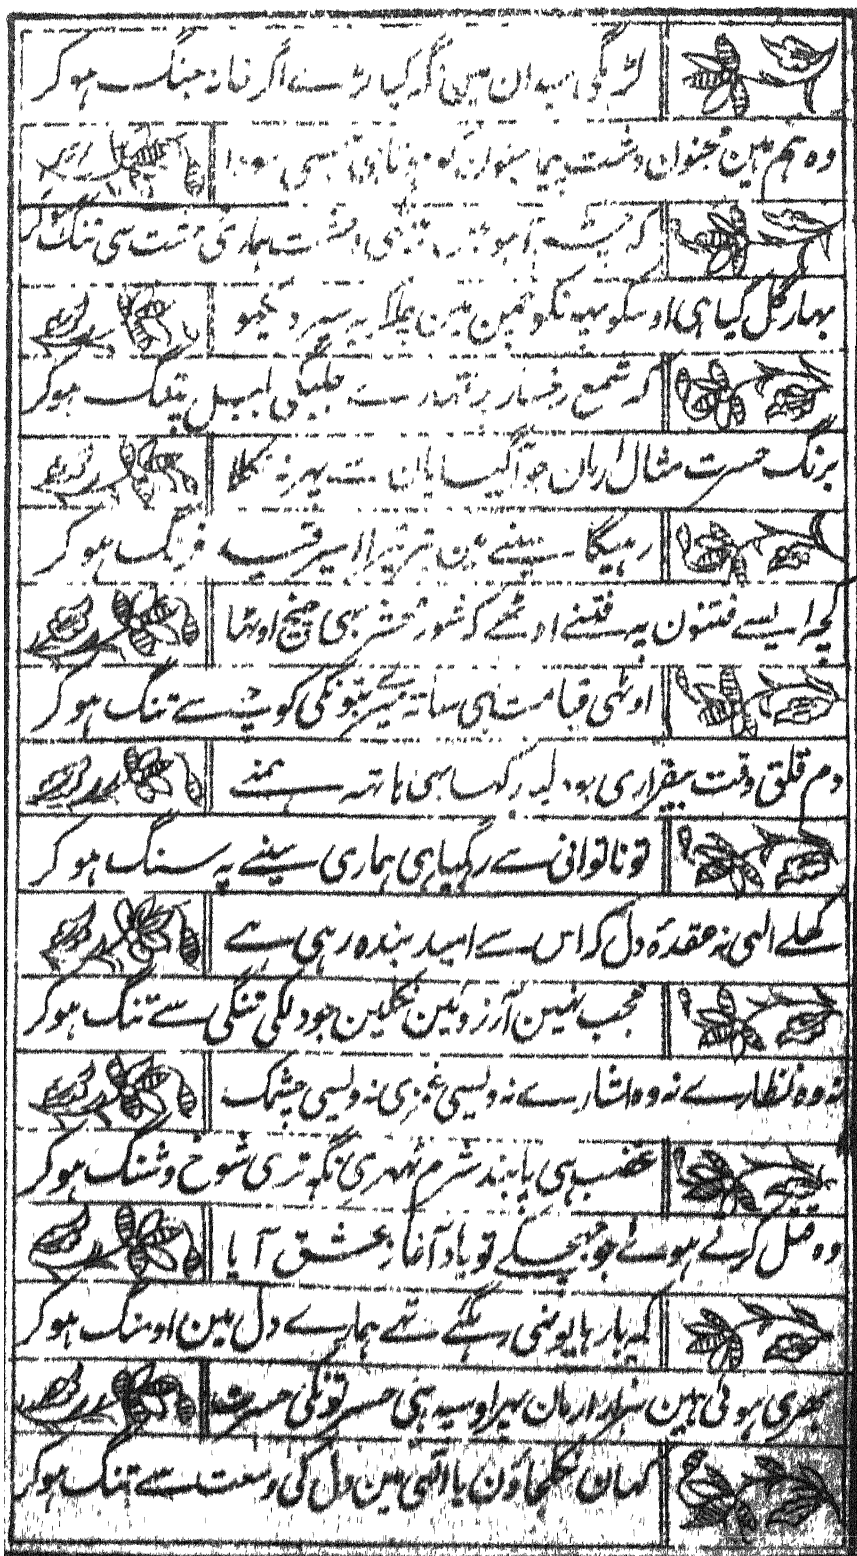 لڑیگی میدان مین نگہ کیا لڑے اگر خانہ جنگ ہو کر
وہ ہم ہین مجنون دشت پیما
کہ آہو ہماری سی تنگ ہوکر
بہار گل کیا ہی اوسکو پہونکو چمن مین بلکہ یہ سیر دیکہو
کہ شمع رخسار پر تمہارے جلیگی بلبل پتنگ ہوکر
برنگ حسرت مثال ارمان جو آگیا یان سے پہر نہ نکلا
رہیگا سینے مین تیر تیرا اسیر قید فرنگ ہو کر
کچہ ایسے فتنون پہ فتنے اوٹھے کہ شور محشر بہی چیخ اوٹہا
اوٹہی قیامت بہی ساتہ میرے بتونکی کوچے سے تنگ ہو کر
دم قلق وقت بیقراری رکہا ہی ہاتہہ ہمنے
تو ناتوانی سے رہگیا ہی ہماری سینے پہ سنگ ہو کر
کھلے الہی نہ عقدۂ دل کہ اس سے امید بندہ رہی ہے
عجب نہین آرزوئین نکلین جو دلکی تنگی سے تنگ ہوکر
نہ وہ نظارے نہ وہ اشارے نہ ویسی نہ ویسی چشمک
غضب ہی پابند شرم ٹہری نگہ تری شوخ و شنگ ہوکر
وہ وصل کرتے ہوئے جو جھجکے تو یاد آغاز عشق آیا
کہ بارہا یونہی رہگئے تہے ہمارے دل مین اومنگ ہوکر
بہری ہوئی ہین ہزار ارمان پہر اوسپہ ہی حسرتونکی حسرت
کہان نکلجاؤن یا الہی مین دل کی وسعت سے تنگ ہوکر